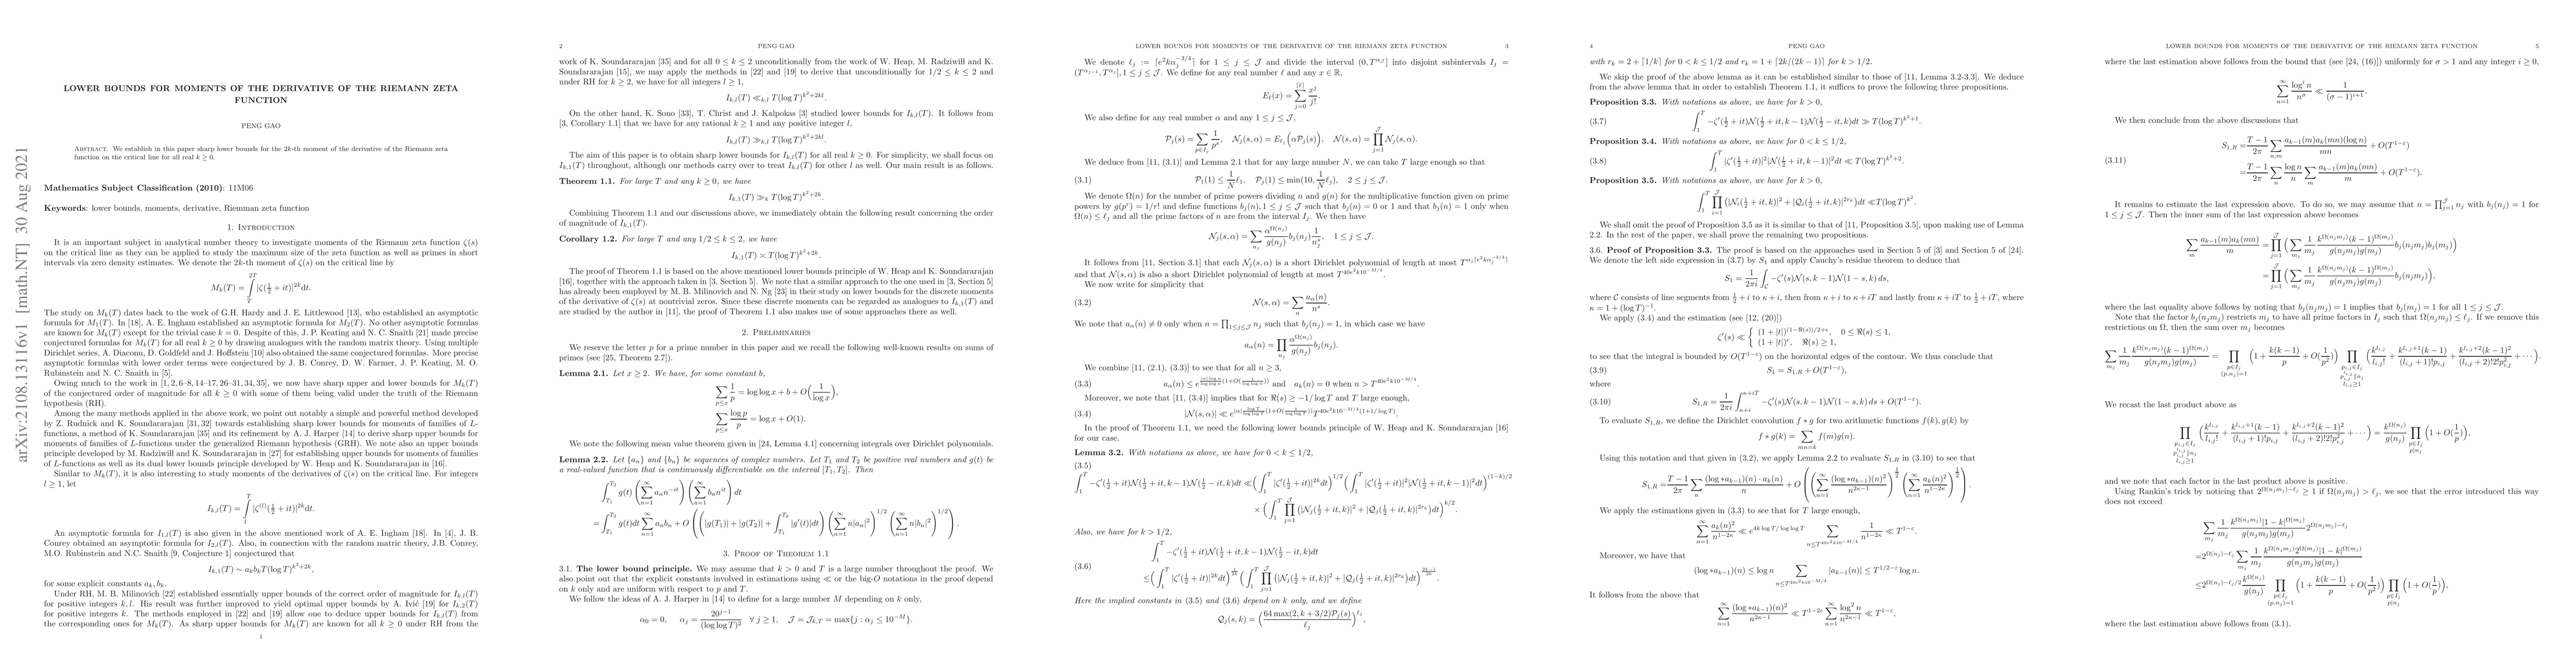 arXiv:2108.13116v1 [math.NT] 30 Aug 2021
LOWER BOUNDS FOR MOMENTS OF THE DERIVATIVE OF THE RIEMANN ZETA
FUNCTION
PENG GAO
Abstract. We establish in this paper sharp lower bounds for the 2k-th moment of the derivative of the Riemann zeta
function on the critical line for all real k ≥ 0.
Mathematics Subject Classification (2010): 11M06
Keywords: lower bounds, moments, derivative, Riemman zeta function
1. Introduction
It is an important subject in analytical number theory to investigate moments of the Riemann zeta function ζ(s)
on the critical line as they can be applied to study the maximum size of the zeta function as well as primes in short
intervals via zero density estimates. We denote the 2k-th moment of ζ(s) on the critical line by
M_k(T) = ∫_T^{2T} |ζ(1/2 + it)|^{2k} dt.
The study on M_k(T) dates back to the work of G.H. Hardy and J. E. Littlewood [13], who established an asymptotic
formula for M_1(T). In [18], A. E. Ingham established an asymptotic formula for M_2(T). No other asymptotic formulas
are known for M_k(T) except for the trivial case k = 0. Despite of this, J. P. Keating and N. C. Snaith [21] made precise
conjectured formulas for M_k(T) for all real k ≥ 0 by drawing analogues with the random matrix theory. Using multiple
Dirichlet series, A. Diaconu, D. Goldfeld and J. Hoffstein [10] also obtained the same conjectured formulas. More precise
asymptotic formulas with lower order terms were conjectured by J. B. Conrey, D. W. Farmer, J. P. Keating, M. O.
Rubinstein and N. C. Snaith in [5].
Owing much to the work in [1, 2, 6–8, 14–17, 26–31, 34, 35], we now have sharp upper and lower bounds for M_k(T)
of the conjectured order of magnitude for all k ≥ 0 with some of them being valid under the truth of the Riemann
hypothesis (RH).
Among the many methods applied in the above work, we point out notably a simple and powerful method developed
by Z. Rudnick and K. Soundararajan [31, 32] towards establishing sharp lower bounds for moments of families of L-
functions, a method of K. Soundararajan [35] and its refinement by A. J. Harper [14] to derive sharp upper bounds for
moments of families of L-functions under the generalized Riemann hypothesis (GRH). We note also an upper bounds
principle developed by M. Radziwiłł and K. Soundararajan in [27] for establishing upper bounds for moments of families
of L-functions as well as its dual lower bounds principle developed by W. Heap and K. Soundararajan in [16].
Similar to M_k(T), it is also interesting to study moments of the derivatives of ζ(s) on the critical line. For integers
l ≥ 1, let
I_{k,l}(T) = ∫_1^T |ζ^{(l)}(1/2 + it)|^{2k} dt.
An asymptotic formula for I_{1,l}(T) is also given in the above mentioned work of A. E. Ingham [18]. In [4], J. B.
Conrey obtained an asymptotic formula for I_{2,l}(T). Also, in connection with the random matrix theory, J.B. Conrey,
M.O. Rubinstein and N.C. Snaith [9, Conjecture 1] conjectured that
I_{k,1}(T) ∼ a_k b_k T(log T)^{k^2+2k},
for some explicit constants a_k, b_k.
Under RH, M. B. Milinovich [22] established essentially upper bounds of the correct order of magnitude for I_{k,l}(T)
for positive integers k, l. His result was further improved to yield optimal upper bounds by A. Ivić [19] for I_{k,2}(T)
for positive integers k. The methods employed in [22] and [19] allow one to deduce upper bounds for I_{k,l}(T) from
the corresponding ones for M_k(T). As sharp upper bounds for M_k(T) are known for all k ≥ 0 under RH from the
1
2 PENG GAO
work of K. Soundararajan [35] and for all 0 ≤ k ≤ 2 unconditionally from the work of W. Heap, M. Radziwiłł and K.
Soundararajan [15], we may apply the methods in [22] and [19] to derive that unconditionally for 1/2 ≤ k ≤ 2 and
under RH for k ≥ 2, we have for all integers l ≥ 1,
I_{k,l}(T) ≪_{k,l} T(log T)^{k^2+2kl}.
On the other hand, K. Sono [33], T. Christ and J. Kalpokas [3] studied lower bounds for I_{k,l}(T). It follows from
[3, Corollary 1.1] that we have for any rational k ≥ 1 and any positive integer l,
I_{k,l}(T) ≫_{k,l} T(log T)^{k^2+2kl}.
The aim of this paper is to obtain sharp lower bounds for I_{k,l}(T) for all real k ≥ 0. For simplicity, we shall focus on
I_{k,1}(T) throughout, although our methods carry over to treat I_{k,l}(T) for other l as well. Our main result is as follows.
Theorem 1.1. For large T and any k ≥ 0, we have
I_{k,1}(T) ≫_k T(log T)^{k^2+2k}.
Combining Theorem 1.1 and our discussions above, we immediately obtain the following result concerning the order
of magnitude of I_{k,1}(T).
Corollary 1.2. For large T and any 1/2 ≤ k ≤ 2, we have
I_{k,1}(T) ≍ T(log T)^{k^2+2k}.
The proof of Theorem 1.1 is based on the above mentioned lower bounds principle of W. Heap and K. Soundararajan
[16], together with the approach taken in [3, Section 5]. We note that a similar approach to the one used in [3, Section 5]
has already been employed by M. B. Milinovich and N. Ng [23] in their study on lower bounds for the discrete moments
of the derivative of ζ(s) at nontrivial zeros. Since these discrete moments can be regarded as analogues to I_{k,1}(T) and
are studied by the author in [11], the proof of Theorem 1.1 also makes use of some approaches there as well.
2. Preliminaries
We reserve the letter p for a prime number in this paper and we recall the following well-known results on sums of
primes (see [25, Theorem 2.7]).
Lemma 2.1. Let x ≥ 2. We have, for some constant b,
∑_{p≤x} 1/p = log log x + b + O(1/log x),
∑_{p≤x} log p/p = log x + O(1).
We note the following mean value theorem given in [24, Lemma 4.1] concerning integrals over Dirichlet polynomials.
Lemma 2.2. Let {a_n} and {b_n} be sequences of complex numbers. Let T_1 and T_2 be positive real numbers and g(t) be
a real-valued function that is continuously differentiable on the interval [T_1, T_2]. Then
∫_{T_1}^{T_2} g(t) (∑_{n=1}^∞ a_n n^{-it}) (∑_{n=1}^∞ b_n n^{it}) dt
= ∫_{T_1}^{T_2} g(t)dt ∑_{n=1}^∞ a_n b_n + O((|g(T_1)| + |g(T_2)| + ∫_{T_1}^{T_2} |g'(t)|dt) (∑_{n=1}^∞ n|a_n|^2)^{1/2} (∑_{n=1}^∞ n|b_n|^2)^{1/2}).
3. Proof of Theorem 1.1
3.1. The lower bound principle. We may assume that k > 0 and T is a large number throughout the proof. We
also point out that the explicit constants involved in estimations using ≪ or the big-O notations in the proof depend
on k only and are uniform with respect to p and T.
We follow the ideas of A. J. Harper in [14] to define for a large number M depending on k only,
α_0 = 0, α_j = 20^{j-1}/(log log T)^2 ∀ j ≥ 1, 𝒥 = 𝒥_{k,T} = max{j : α_j ≤ 10^{-M}}.
LOWER BOUNDS FOR MOMENTS OF THE DERIVATIVE OF THE RIEMANN ZETA FUNCTION 3
We denote ℓ_j := ⌈e^2 k α_j^{-3/4}⌉ for 1 ≤ j ≤ 𝒥 and divide the interval (0, T^{α_𝒥}) into disjoint subintervals I_j =
(T^{α_{j-1}}, T^{α_j}], 1 ≤ j ≤ 𝒥. We define for any real number ℓ and any x ∈ ℝ,
E_ℓ(x) = ∑_{j=0}^{⌈ℓ⌉} x^j/j!.
We also define for any real number α and any 1 ≤ j ≤ 𝒥,
𝒫_j(s) = ∑_{p∈I_j} 1/p^s, 𝒩_j(s, α) = E_{ℓ_j}(α𝒫_j(s)), 𝒩(s, α) = ∏_{j=1}^𝒥 𝒩_j(s, α).
We deduce from [11, (3.1)] and Lemma 2.1 that for any large number N, we can take T large enough so that
(3.1) 𝒫_1(1) ≤ (1/N)ℓ_1, 𝒫_j(1) ≤ min(10, (1/N)ℓ_j), 2 ≤ j ≤ 𝒥.
We denote Ω(n) for the number of prime powers dividing n and g(n) for the multiplicative function given on prime
powers by g(p^r) = 1/r! and define functions b_j(n), 1 ≤ j ≤ 𝒥 such that b_j(n) = 0 or 1 and that b_j(n) = 1 only when
Ω(n) ≤ ℓ_j and all the prime factors of n are from the interval I_j. We then have
𝒩_j(s, α) = ∑_{n_j} α^{Ω(n_j)}/g(n_j) b_j(n_j) 1/n_j^s, 1 ≤ j ≤ 𝒥.
It follows from [11, Section 3.1] that each 𝒩_j(s, α) is a short Dirichlet polynomial of length at most T^{α_j⌈e^2kα_j^{-3/4}⌉}
and that 𝒩(s, α) is also a short Dirichlet polynomial of length at most T^{40e^2k10^{-M/4}}.
We now write for simplicity that
(3.2) 𝒩(s, α) = ∑_n a_α(n)/n^s.
We note that a_α(n) ≠ 0 only when n = ∏_{1≤j≤𝒥} n_j such that b_j(n_j) = 1, in which case we have
a_α(n) = ∏_{n_j} α^{Ω(n_j)}/g(n_j) b_j(n_j).
We combine [11, (2.1), (3.3)] to see that for all n ≥ 3,
(3.3) a_α(n) ≤ e^{|α| log n/log log n (1+O(1/log log n))} and a_k(n) = 0 when n > T^{40e^2k10^{-M/4}}.
Moreover, we note that [11, (3.4)] implies that for ℜ(s) ≥ −1/log T and T large enough,
(3.4) |𝒩(s, α)| ≪ e^{|α| log T/log log T (1+O(1/log log T))} T^{40e^2k10^{-M/4}(1+1/log T)}.
In the proof of Theorem 1.1, we need the following lower bounds principle of W. Heap and K. Soundararajan [16]
for our case.
Lemma 3.2. With notations as above, we have for 0 < k ≤ 1/2,
(3.5)
∫_1^T −ζ'(1/2 + it)𝒩(1/2 + it, k − 1)𝒩(1/2 − it, k)dt ≪ (∫_1^T |ζ'(1/2 + it)|^{2k}dt)^{1/2} (∫_1^T |ζ'(1/2 + it)|^2|𝒩(1/2 + it, k − 1)|^2dt)^{(1−k)/2}
× (∫_1^T ∏_{j=1}^𝒥 (|𝒩_j(1/2 + it, k)|^2 + |𝒬_j(1/2 + it, k)|^{2r_k})dt)^{k/2}.
Also, we have for k > 1/2,
(3.6)
∫_1^T −ζ'(1/2 + it)𝒩(1/2 + it, k − 1)𝒩(1/2 − it, k)dt
≤ (∫_1^T |ζ'(1/2 + it)|^{2k}dt)^{1/2k} (∫_1^T ∏_{j=1}^𝒥 (|𝒩_j(1/2 + it, k)|^2 + |𝒬_j(1/2 + it, k)|^{2r_k})dt)^{(2k−1)/2k}.
Here the implied constants in (3.5) and (3.6) depend on k only, and we define
𝒬_j(s, k) = (64 max(2, k + 3/2)𝒫_j(s)/ℓ_j)^{ℓ_j},
4 PENG GAO
with r_k = 2 + ⌈1/k⌉ for 0 < k ≤ 1/2 and r_k = 1 + ⌈2k/(2k − 1)⌉ for k > 1/2.
We skip the proof of the above lemma as it can be established similar to those of [11, Lemma 3.2-3.3]. We deduce
from the above lemma that in order to establish Theorem 1.1, it suffices to prove the following three propositions.
Proposition 3.3. With notations as above, we have for k > 0,
(3.7) ∫_1^T −ζ'(1/2 + it)𝒩(1/2 + it, k − 1)𝒩(1/2 − it, k)dt ≫ T(log T)^{k^2+1}.
Proposition 3.4. With notations as above, we have for 0 < k ≤ 1/2,
(3.8) ∫_1^T |ζ'(1/2 + it)|^2|𝒩(1/2 + it, k − 1)|^2dt ≪ T(log T)^{k^2+2}.
Proposition 3.5. With notations as above, we have for k > 0,
∫_1^T ∏_{i=1}^𝒥 (|𝒩_i(1/2 + it, k)|^2 + |𝒬_i(1/2 + it, k)|^{2r_k})dt ≪ T(log T)^{k^2}.
We shall omit the proof of Proposition 3.5 as it is similar to that of [11, Proposition 3.5], upon making use of Lemma
2.2. In the rest of the paper, we shall prove the remaining two propositions.
3.6. Proof of Proposition 3.3. The proof is based on the approaches used in Section 5 of [3] and Section 5 of [24].
We denote the left side expression in (3.7) by S_1 and apply Cauchy's residue theorem to deduce that
S_1 = 1/(2πi) ∫_𝒞 −ζ'(s)𝒩(s, k − 1)𝒩(1 − s, k) ds,
where 𝒞 consists of line segments from 1/2 + i to κ + i, then from κ + i to κ + iT and lastly from κ + iT to 1/2 + iT, where
κ = 1 + (log T)^{-1}.
We apply (3.4) and the estimation (see [12, (20)])
ζ'(s) ≪ { (1 + |t|)^{(1−ℜ(s))/2+ε}, 0 ≤ ℜ(s) ≤ 1,
(1 + |t|)^ε, ℜ(s) ≥ 1,
to see that the integral is bounded by O(T^{1−ε}) on the horizontal edges of the contour. We thus conclude that
(3.9) S_1 = S_{1,R} + O(T^{1−ε}),
where
(3.10) S_{1,R} = 1/(2πi) ∫_{κ+i}^{κ+iT} −ζ'(s)𝒩(s, k − 1)𝒩(1 − s, k) ds + O(T^{1−ε}).
To evaluate S_{1,R}, we define the Dirichlet convolution f ∗ g for two arithmetic functions f(k), g(k) by
f ∗ g(k) = ∑_{mn=k} f(m)g(n).
Using this notation and that given in (3.2), we apply Lemma 2.2 to evaluate S_{1,R} in (3.10) to see that
S_{1,R} = (T − 1)/2π ∑_n (log ∗a_{k−1})(n) · a_k(n)/n + O((∑_{n=1}^∞ (log ∗a_{k−1})(n)^2/n^{2κ−1})^{1/2} (∑_{n=1}^∞ a_k(n)^2/n^{1−2κ})^{1/2}).
We apply the estimations given in (3.3) to see that for T large enough,
∑_{n=1}^∞ a_k(n)^2/n^{1−2κ} ≪ e^{4k log T/log log T} ∑_{n≤T^{40e^2k10^{-M/4}}} 1/n^{1−2κ} ≪ T^{1−ε}.
Moreover, we have that
(log ∗a_{k−1})(n) ≤ log n ∑_{n≤T^{40e^2k10^{-M/4}}} |a_{k−1}(n)| ≪ T^{1/2−ε} log n.
It follows from the above that
∑_{n=1}^∞ (log ∗a_{k−1})(n)^2/n^{2κ−1} ≪ T^{1−2ε} ∑_{n=1}^∞ log^2 n/n^{2κ−1} ≪ T^{1−ε},
LOWER BOUNDS FOR MOMENTS OF THE DERIVATIVE OF THE RIEMANN ZETA FUNCTION 5
where the last estimation above follows from the bound that (see [24, (16)]) uniformly for σ > 1 and any integer i ≥ 0,
∑_{n=1}^∞ log^i n/n^σ ≪ 1/(σ − 1)^{i+1}.
We then conclude from the above discussions that
(3.11)
S_{1,R} = (T − 1)/2π ∑_{n,m} a_{k−1}(m)a_k(mn)(log n)/mn + O(T^{1−ε})
= (T − 1)/2π ∑_n log n/n ∑_m a_{k−1}(m)a_k(mn)/m + O(T^{1−ε}).
It remains to estimate the last expression above. To do so, we may assume that n = ∏_{j=1}^𝒥 n_j with b_j(n_j) = 1 for
1 ≤ j ≤ 𝒥. Then the inner sum of the last expression above becomes
∑_m a_{k−1}(m)a_k(mn)/m = ∏_{j=1}^𝒥 (∑_{m_j} 1/m_j k^{Ω(n_jm_j)}(k − 1)^{Ω(m_j)}/g(n_jm_j)g(m_j) b_j(n_jm_j)b_j(m_j))
= ∏_{j=1}^𝒥 (∑_{m_j} 1/m_j k^{Ω(n_jm_j)}(k − 1)^{Ω(m_j)}/g(n_jm_j)g(m_j) b_j(n_jm_j)),
where the last equality above follows by noting that b_j(n_jm_j) = 1 implies that b_j(m_j) = 1 for all 1 ≤ j ≤ 𝒥.
Note that the factor b_j(n_jm_j) restricts m_j to have all prime factors in I_j such that Ω(n_jm_j) ≤ ℓ_j. If we remove this
restrictions on Ω, then the sum over m_j becomes
∑_{m_j} 1/m_j k^{Ω(n_jm_j)}(k − 1)^{Ω(m_j)}/g(n_jm_j)g(m_j) = ∏_{p∈I_j, (p,n_j)=1} (1 + k(k − 1)/p + O(1/p^2)) ∏_{p_{i,j}∈I_j, p_{i,j}^{l_{i,j}}∥n_j, l_{i,j}≥1} (k^{l_{i,j}}/l_{i,j}! + k^{l_{i,j}+1}(k − 1)/(l_{i,j} + 1)!p_{i,j} + k^{l_{i,j}+2}(k − 1)^2/(l_{i,j} + 2)!2!p_{i,j}^2 + · · ·).
We recast the last product above as
∏_{p_{i,j}∈I_j, p_{i,j}^{l_{i,j}}∥n_j, l_{i,j}≥1} (k^{l_{i,j}}/l_{i,j}! + k^{l_{i,j}+1}(k − 1)/(l_{i,j} + 1)!p_{i,j} + k^{l_{i,j}+2}(k − 1)^2/(l_{i,j} + 2)!2!p_{i,j}^2 + · · ·) = k^{Ω(n_j)}/g(n_j) ∏_{p∈I_j, p|n_j} (1 + O(1/p)),
and we note that each factor in the last product above is positive.
Using Rankin's trick by noticing that 2^{Ω(n_jm_j)−ℓ_j} ≥ 1 if Ω(n_jm_j) > ℓ_j, we see that the error introduced this way
does not exceed
∑_{m_j} 1/m_j k^{Ω(n_jm_j)}|1 − k|^{Ω(m_j)}/g(n_jm_j)g(m_j) 2^{Ω(n_jm_j)−ℓ_j}
= 2^{Ω(n_j)−ℓ_j} ∑_{m_j} 1/m_j k^{Ω(n_jm_j)}2^{Ω(m_j)}|1 − k|^{Ω(m_j)}/g(n_jm_j)g(m_j)
≤ 2^{Ω(n_j)−ℓ_j/2} k^{Ω(n_j)}/g(n_j) ∏_{p∈I_j, (p,n_j)=1} (1 + k(k − 1)/p + O(1/p^2)) ∏_{p∈I_j, p|n_j} (1 + O(1/p)),
where the last estimation above follows from (3.1).